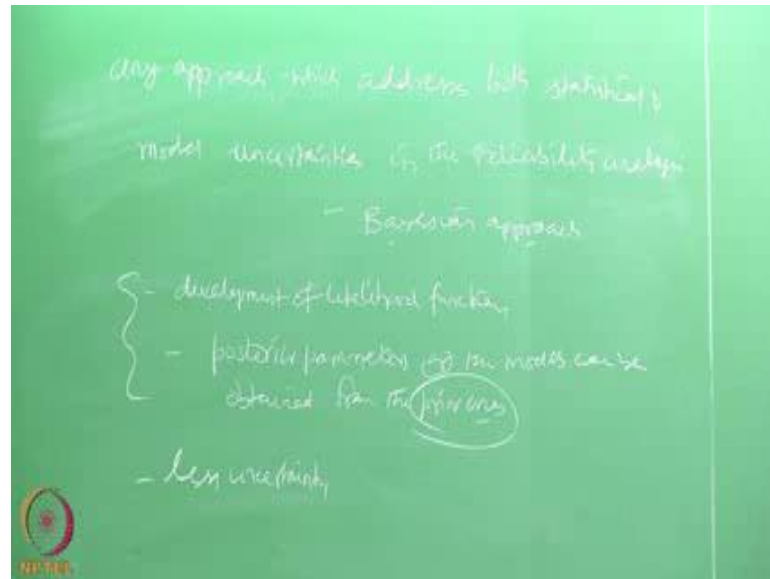 any approach which address both statistical &
model uncertainties in the reliability analysis
- Bayesian approach
- development of likelihood function
- posterior parameters of the model can be
obtained from the prior ones
- less uncertainty
NPTEL